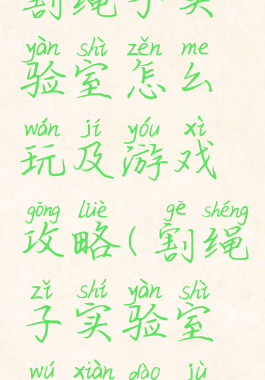 割绳子实
yàn shì zěn me
验室怎么
wán jí yóu xì
玩及游戏
gōng lüè gē shéng
攻略(割绳
zǐ shí yàn shì
子实验室
wú xiàn dào jù